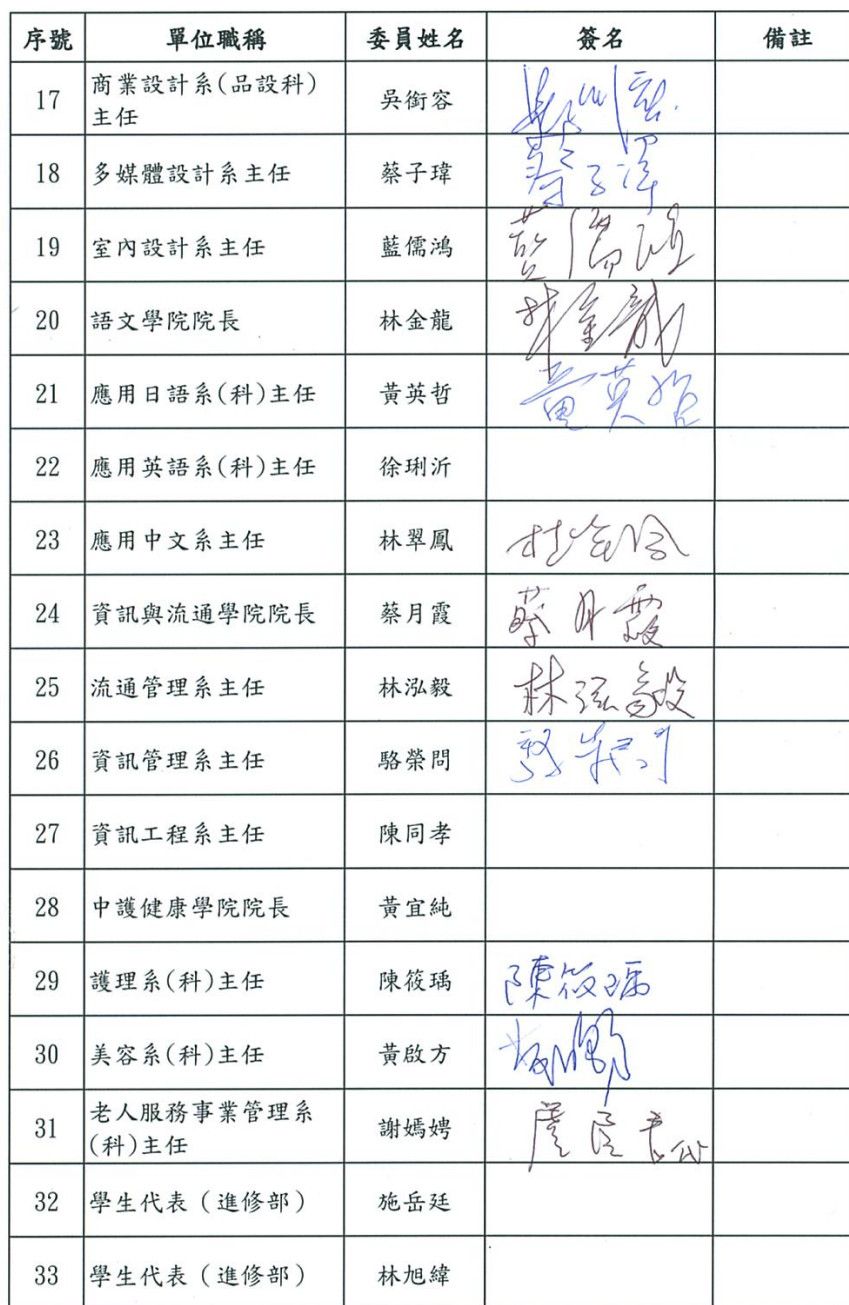 序號 單位職稱 委員姓名 簽名 備註
17 商業設計系(品設科) 吳銜容
主任
18 多媒體設計系主任 蔡子瑋 蔡子瑋
19 室內設計系主任 藍儒鴻 藍儒鴻
20 語文學院院長 林金龍 林金龍
21 應用日語系(科)主任 黃英哲 黃英哲
22 應用英語系(科)主任 徐琍沂
23 應用中文系主任 林翠鳳
24 資訊與流通學院院長 蔡月霞 蔡月霞
25 流通管理系主任 林泓毅 林泓毅
26 資訊管理系主任 駱榮問 駱榮問
27 資訊工程系主任 陳同孝
28 中護健康學院院長 黃宜純
29 護理系(科)主任 陳筱瑀 陳筱瑀
30 美容系(科)主任 黃啟方
31 老人服務事業管理系 謝嫣娉
(科)主任
32 學生代表（進修部） 施岳廷
33 學生代表（進修部） 林旭緯